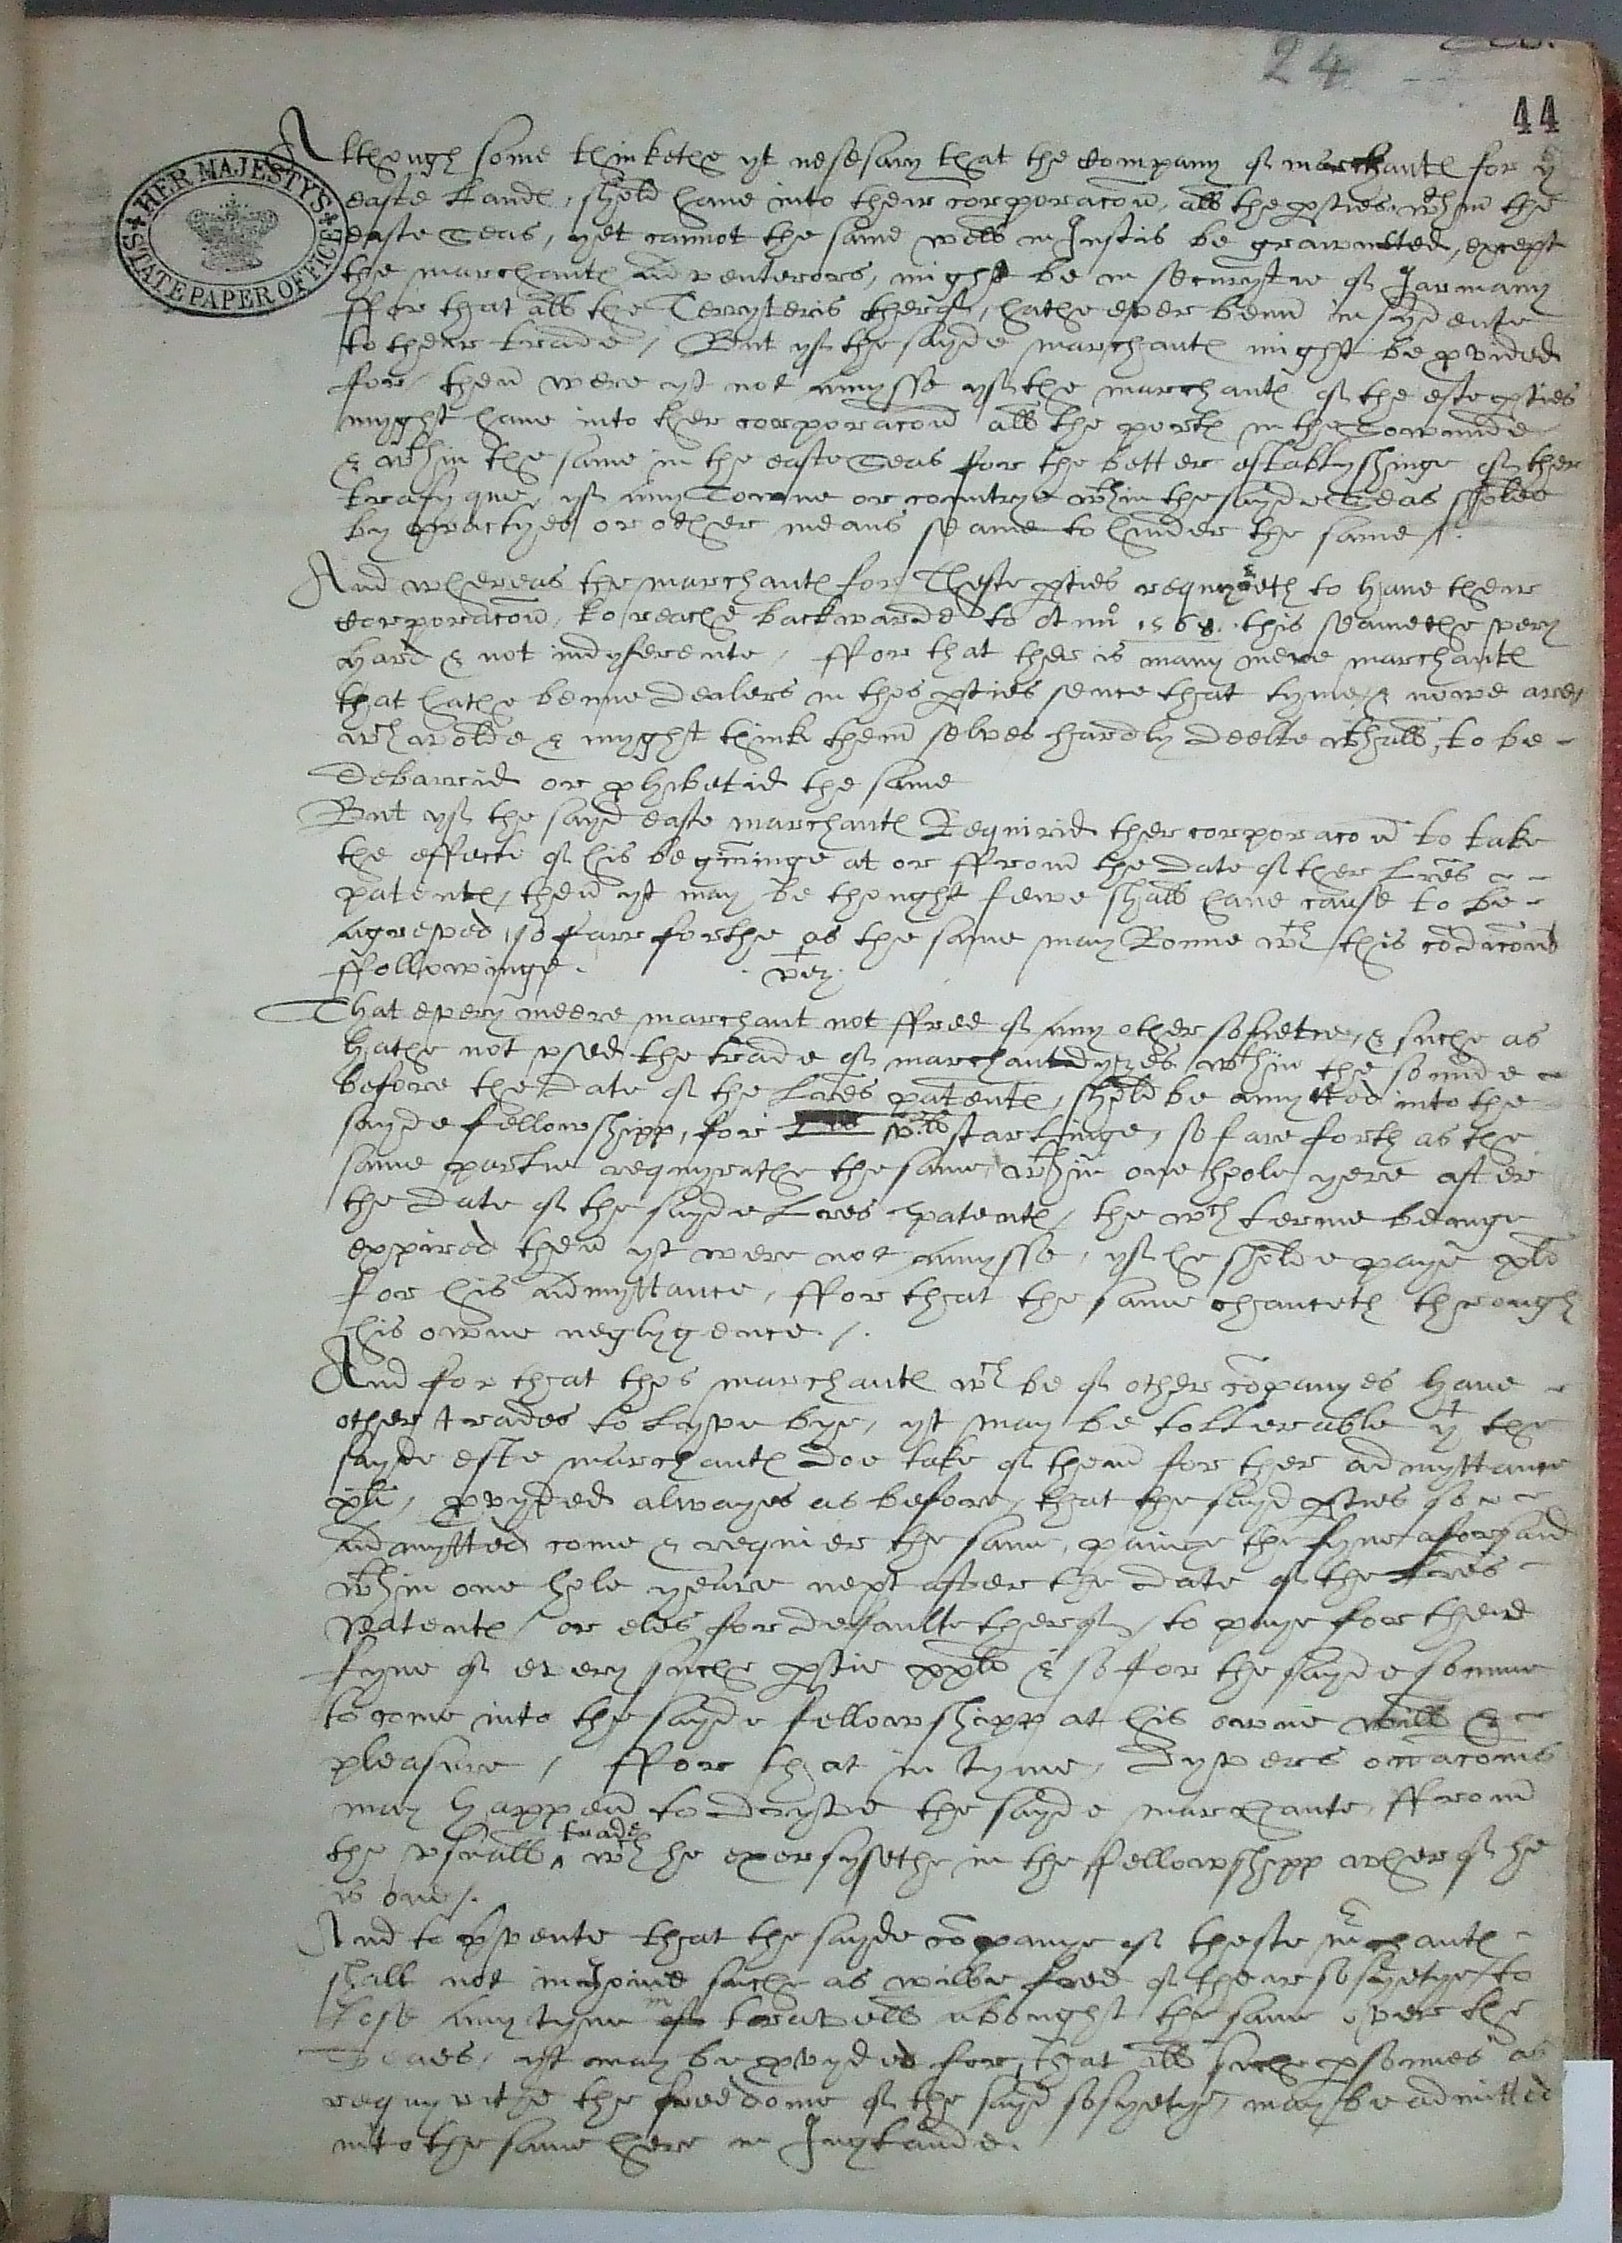 24
44
HER MAJESTY'S
STATE PAPER OFFICE
Although some thinkethe yt nesesary that the Company of marchants for ye
easte Lands, shold have into their corporacoun, all the pties wthin the
easte Seas, yet cannot the same well in Justis be grawnted, except
the marchants adventerors, might be in securytie of Jarmany
ffor that all the Terryteris therof, hathe ever benn insydente
to their trade / But yf the sayde marchants might be pvided
for, then were yt not amysse yf the marchants of the este pties
myght have into ther corporacoun all the ports in the Sownde
& wthin the same in the easte Seas for the better establyshinge of ther
trafyque, yf any Towne or countrye wthin the sayde Seas sholde
by practyes or other means seame to hinder the same /.
And whereas the marchants for Theste pties requyreth to have their
corporacoun, to reache backwarde to Ano 1568. this seamethe very
hard & not indyferente, ffor that ther is many mere marchants
that hathe benne dealers in thos pties sence that tyme, & nowe are,
wch wolde & myght think them selves hardly deelte wthall, to be
debarrid or phibetid the same
But yf the sayd easte marchants Requirid ther corporacoun to take
the effecte of his beginninge at or ffrom the date of ther Lres
patents, then yt may be thought fewe shall have cause to be
agreved, so farr forthe as the same may Ronne wth this condicoun
ffollowinge. vez.
That every meere marchant not ffree of any other sosietie, & suche as
hathe not used the trade of marchantdyzes wthin the sounde
before the date of the Lres patents, shold be amytted into the
sayde fellowshipp, for starlinge, so fare forth as the
same partie requyrethe the same, wthin one hole yere after
the date of the sayde Lres patents, the wch terme beinge
expired then yt were not amysse, yf he sholde paye xli
for his admyttance, ffor that the same chanceth through
his owne neglygence /.
And for that thos marchants wch be of other companyes have
other trades to lyve bye, yt may be tollerable yt the
sayde este marchants doe take of them for ther admyttance
xli, pvyded alwayes as before, that the sayd pties so
admytted come & requier the same, painge the fyne aforsaid
wthin one hole yeare next after the date of the Lres
Patents, or eles for defaulte therof, to paye for there
fyne of every suche ptie xxli & so for the sayde somme
to come into the sayde fellowshipp at his owne will &
pleasure, ffor that in tyme, dyvers occacouns
may happen to dryve the sayde marchante ffrom
the usuall trade wch he exersysethe in the fellowshipp wherof he
is one /.
And to pvente that the sayde companye of theste mrchants
shall not injoine suche as wilbe free of theire sosyetye, to
lose any tyme in travell abought the same over the
Seaes, yt may be pvyded for, that all suche psonnes as
requyrithe the freedome of the sayd sosyetye, may be admitted
into the same here in Inglande.